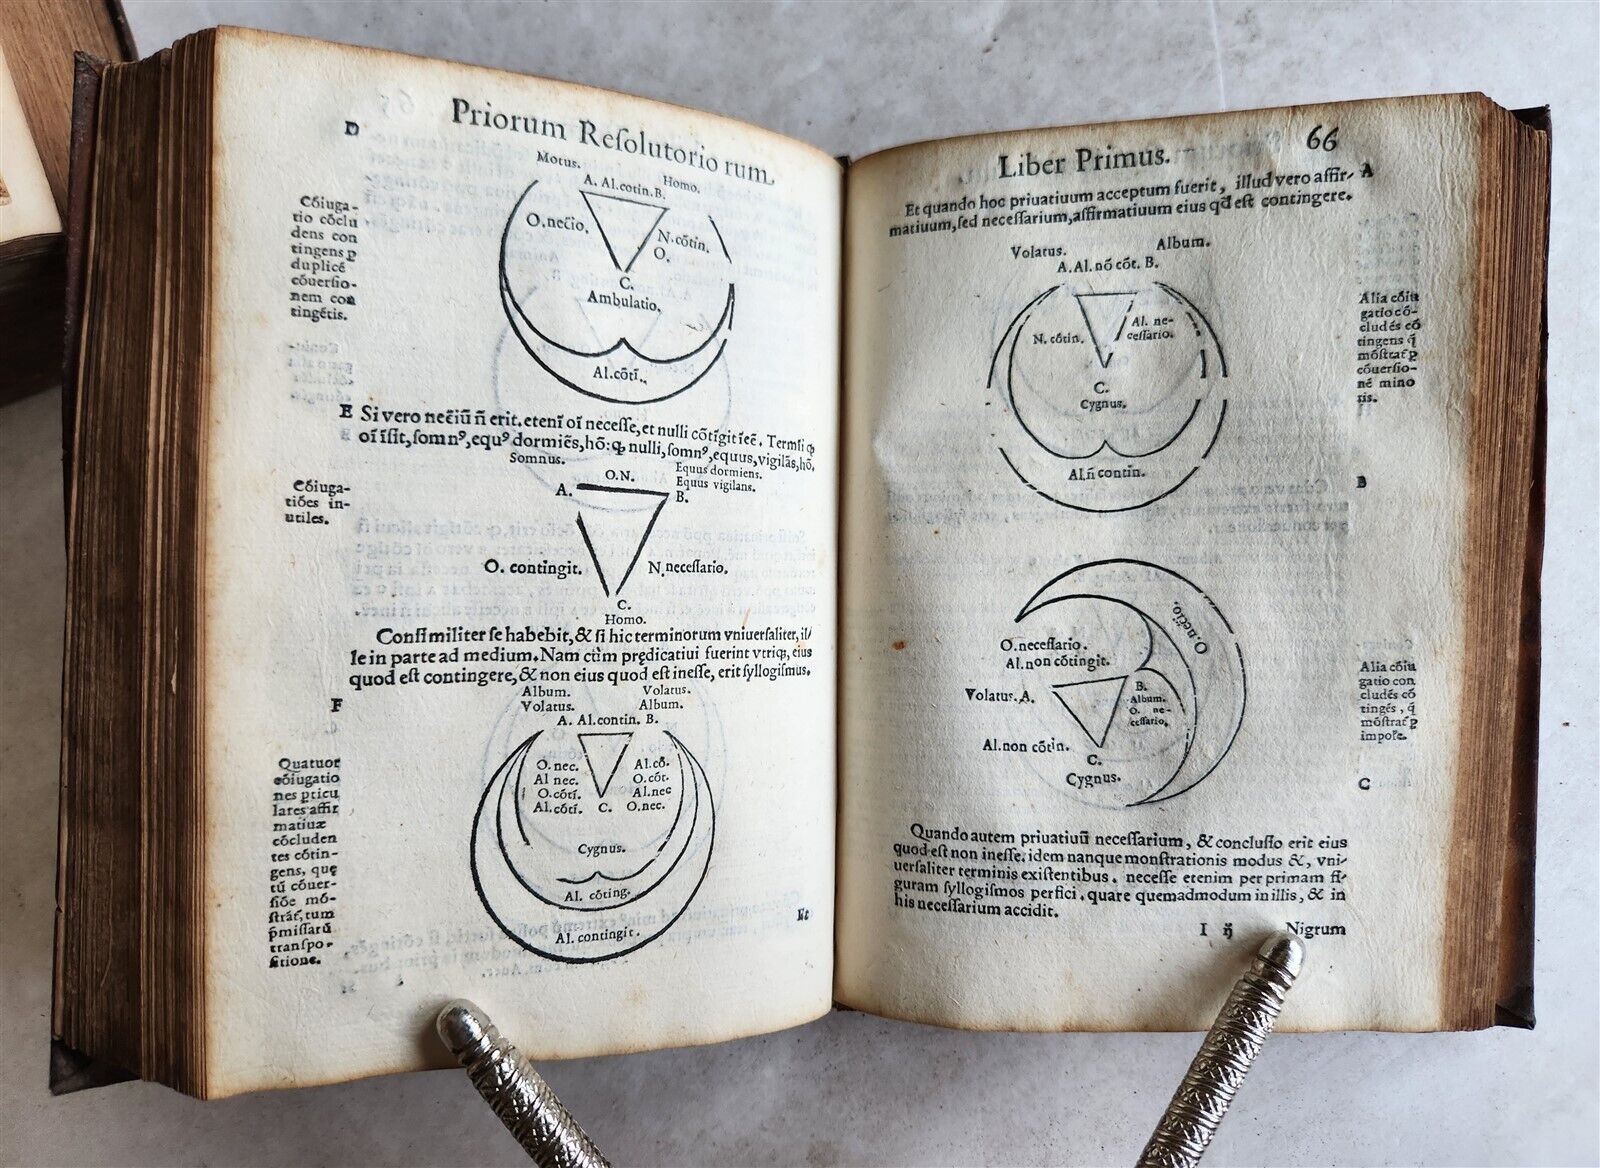 Priorum Reſolutorio rum.
D
Motus.
A. Al.cõtin. B.
Homo.
O.nec̃io.
N.cõtin.
O.
C.
Ambulatio.
Al.cõtĩ.
Cõiuga-
tio cõclu
dens con
tingens ꝑ
duplicẽ
cõuerſio-
nem con
tingẽtis.
E Si vero nec̃iũ ñ erit. etenĩ oĩ neceſſe, et nulli cõtĩgit ĩeẽ. Termĩi
oĩ ĩſit, ſomnꝰ, equꝰ dormiẽs, hõ: nulli, ſomnꝰ, equus, vigilãs, hõ.
Somnus.
O.N.
Equus dormiens.
Equus vigilans.
A.
B.
Cõiuga-
tiões in-
utiles.
O. contingit.
N. neceſſario.
C.
Homo.
Conſimiliter ſe habebit, & ſi hic terminorum vniuerſaliter, il/
le in parte ad medium. Nam cùm prędicatiui fuerint vtriq;, eius
quod eſt contingere, & non eius quod eſt ineſſe, erit ſyllogiſmus.
Album.
Volatus.
Volatus.
Album.
F
A. Al.contin. B.
O. nec.
Al nec.
O.cõtĩ.
Al.cõtĩ.
Al.cõ.
O.cõt.
Al.nec
O.nec.
C.
Cygnus.
Al. cõting.
Al. contingit.
Quatuor
cõiugatio
nes ꝑticu
lares affir
matiuæ
cõcluden
tes cõtin-
gens, quę
tũ cõuer-
ſiõe mõ-
ſtrãt, tum
p̃miſſarũ
tranſpo-
ſitione.
Et
Liber Primus.
66
Et quando hoc priuatiuum acceptum fuerit, illud vero affir- A
matiuum, ſed neceſſarium, affirmatiuum eius qđ eſt contingere.
Volatus.
Album.
A. Al. nõ cõt. B.
N. cõtin.
Al. ne-
ceſſario.
C.
Cygnus.
Al. ñ contin.
Alia cõiu
gatio cõ-
cludẽs cõ
tingens q̃
mõſtrat̃ ꝑ
cõuerſio-
nẽ mino
ris.
B
O. neceſſario.
Al. non cõtingit.
O. nec̃io.
Volatus. A.
B.
Album.
O. ne-
ceſſario.
Al. non cõtin.
C.
Cygnus.
Alia cõiu
gatio con
cludẽs cõ
tingẽs, q̃
mõſtrat̃ ꝑ
impoſe.
C
Quando autem priuatiuũ neceſſarium, & concluſio erit eius
quod eſt non ineſſe. idem nanque monſtrationis modus &, vni-
uerſaliter terminis exiſtentibus. neceſſe etenim per primam fi-
guram ſyllogiſmos perfici, quare quemadmodum in illis, & in
his neceſſarium accidit.
I ij
Nigrum